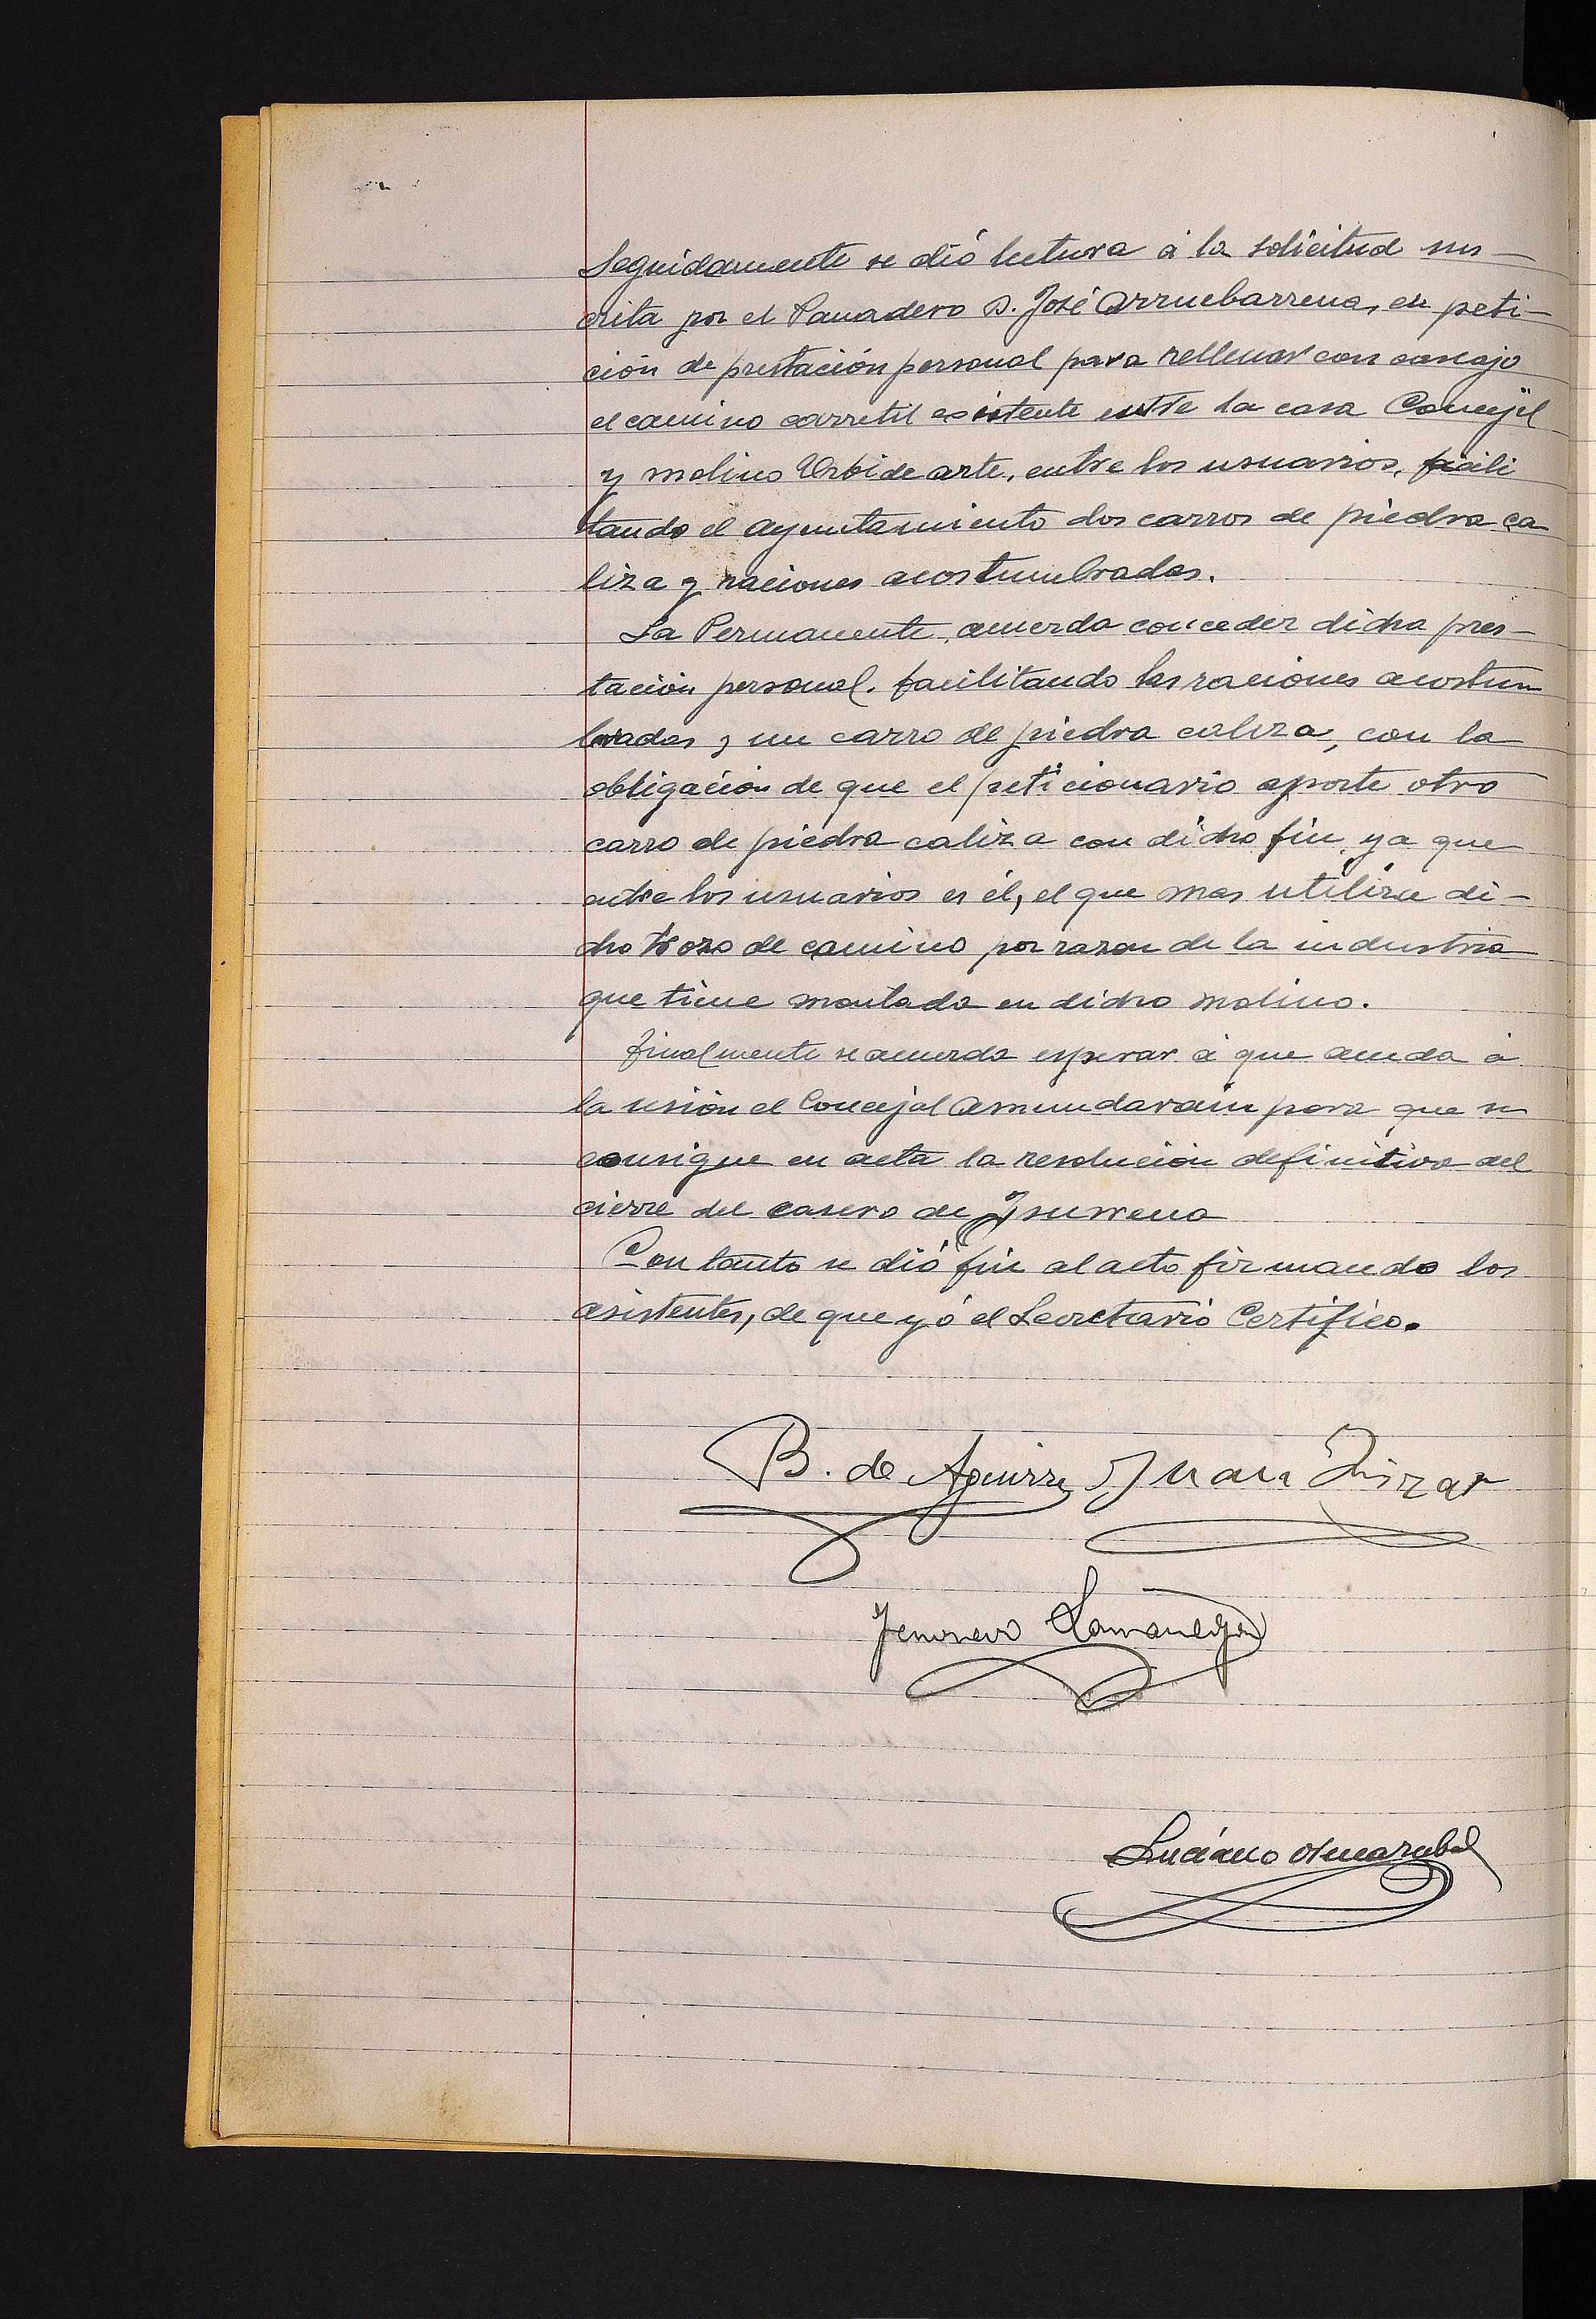 Seguidamente se dió lectura á la solicitud sus-
crita por el Panadero D. José Arruebarrena, en peti-
ción de prestación personal para rellenar con cascajo
el camino carretil existente entre la casa Concejil
y molino Urbidearte, entre los usuarios, facili
tando el Ayuntamiento dos carros de piedra ca
liza y raciones acostumbradas.
La Permanente, acuerda conceder dicha pres-
tación personal. facilitando las raciones acostum
bradas y un carro de piedra caliza, con la
obligación de que el peticionario aporte otro
carro de piedra caliza con dicho fin, ya que
entre los usuarios es él, el que mas utiliza di-
cho trozo de camino por razon de la industria
que tiene montada en dicho molino.
finalmente se acuerda esperar á que acuda á
la sesión el Concejal Amundarain para que se
consigne en acta la resolución definitiva del
cierre del casero de Isurrena
Con tanto se dió fin al acto firmando los
asistentes, de que yó el Secretario Certifico.
B. de Aguirre Juan
Luciano